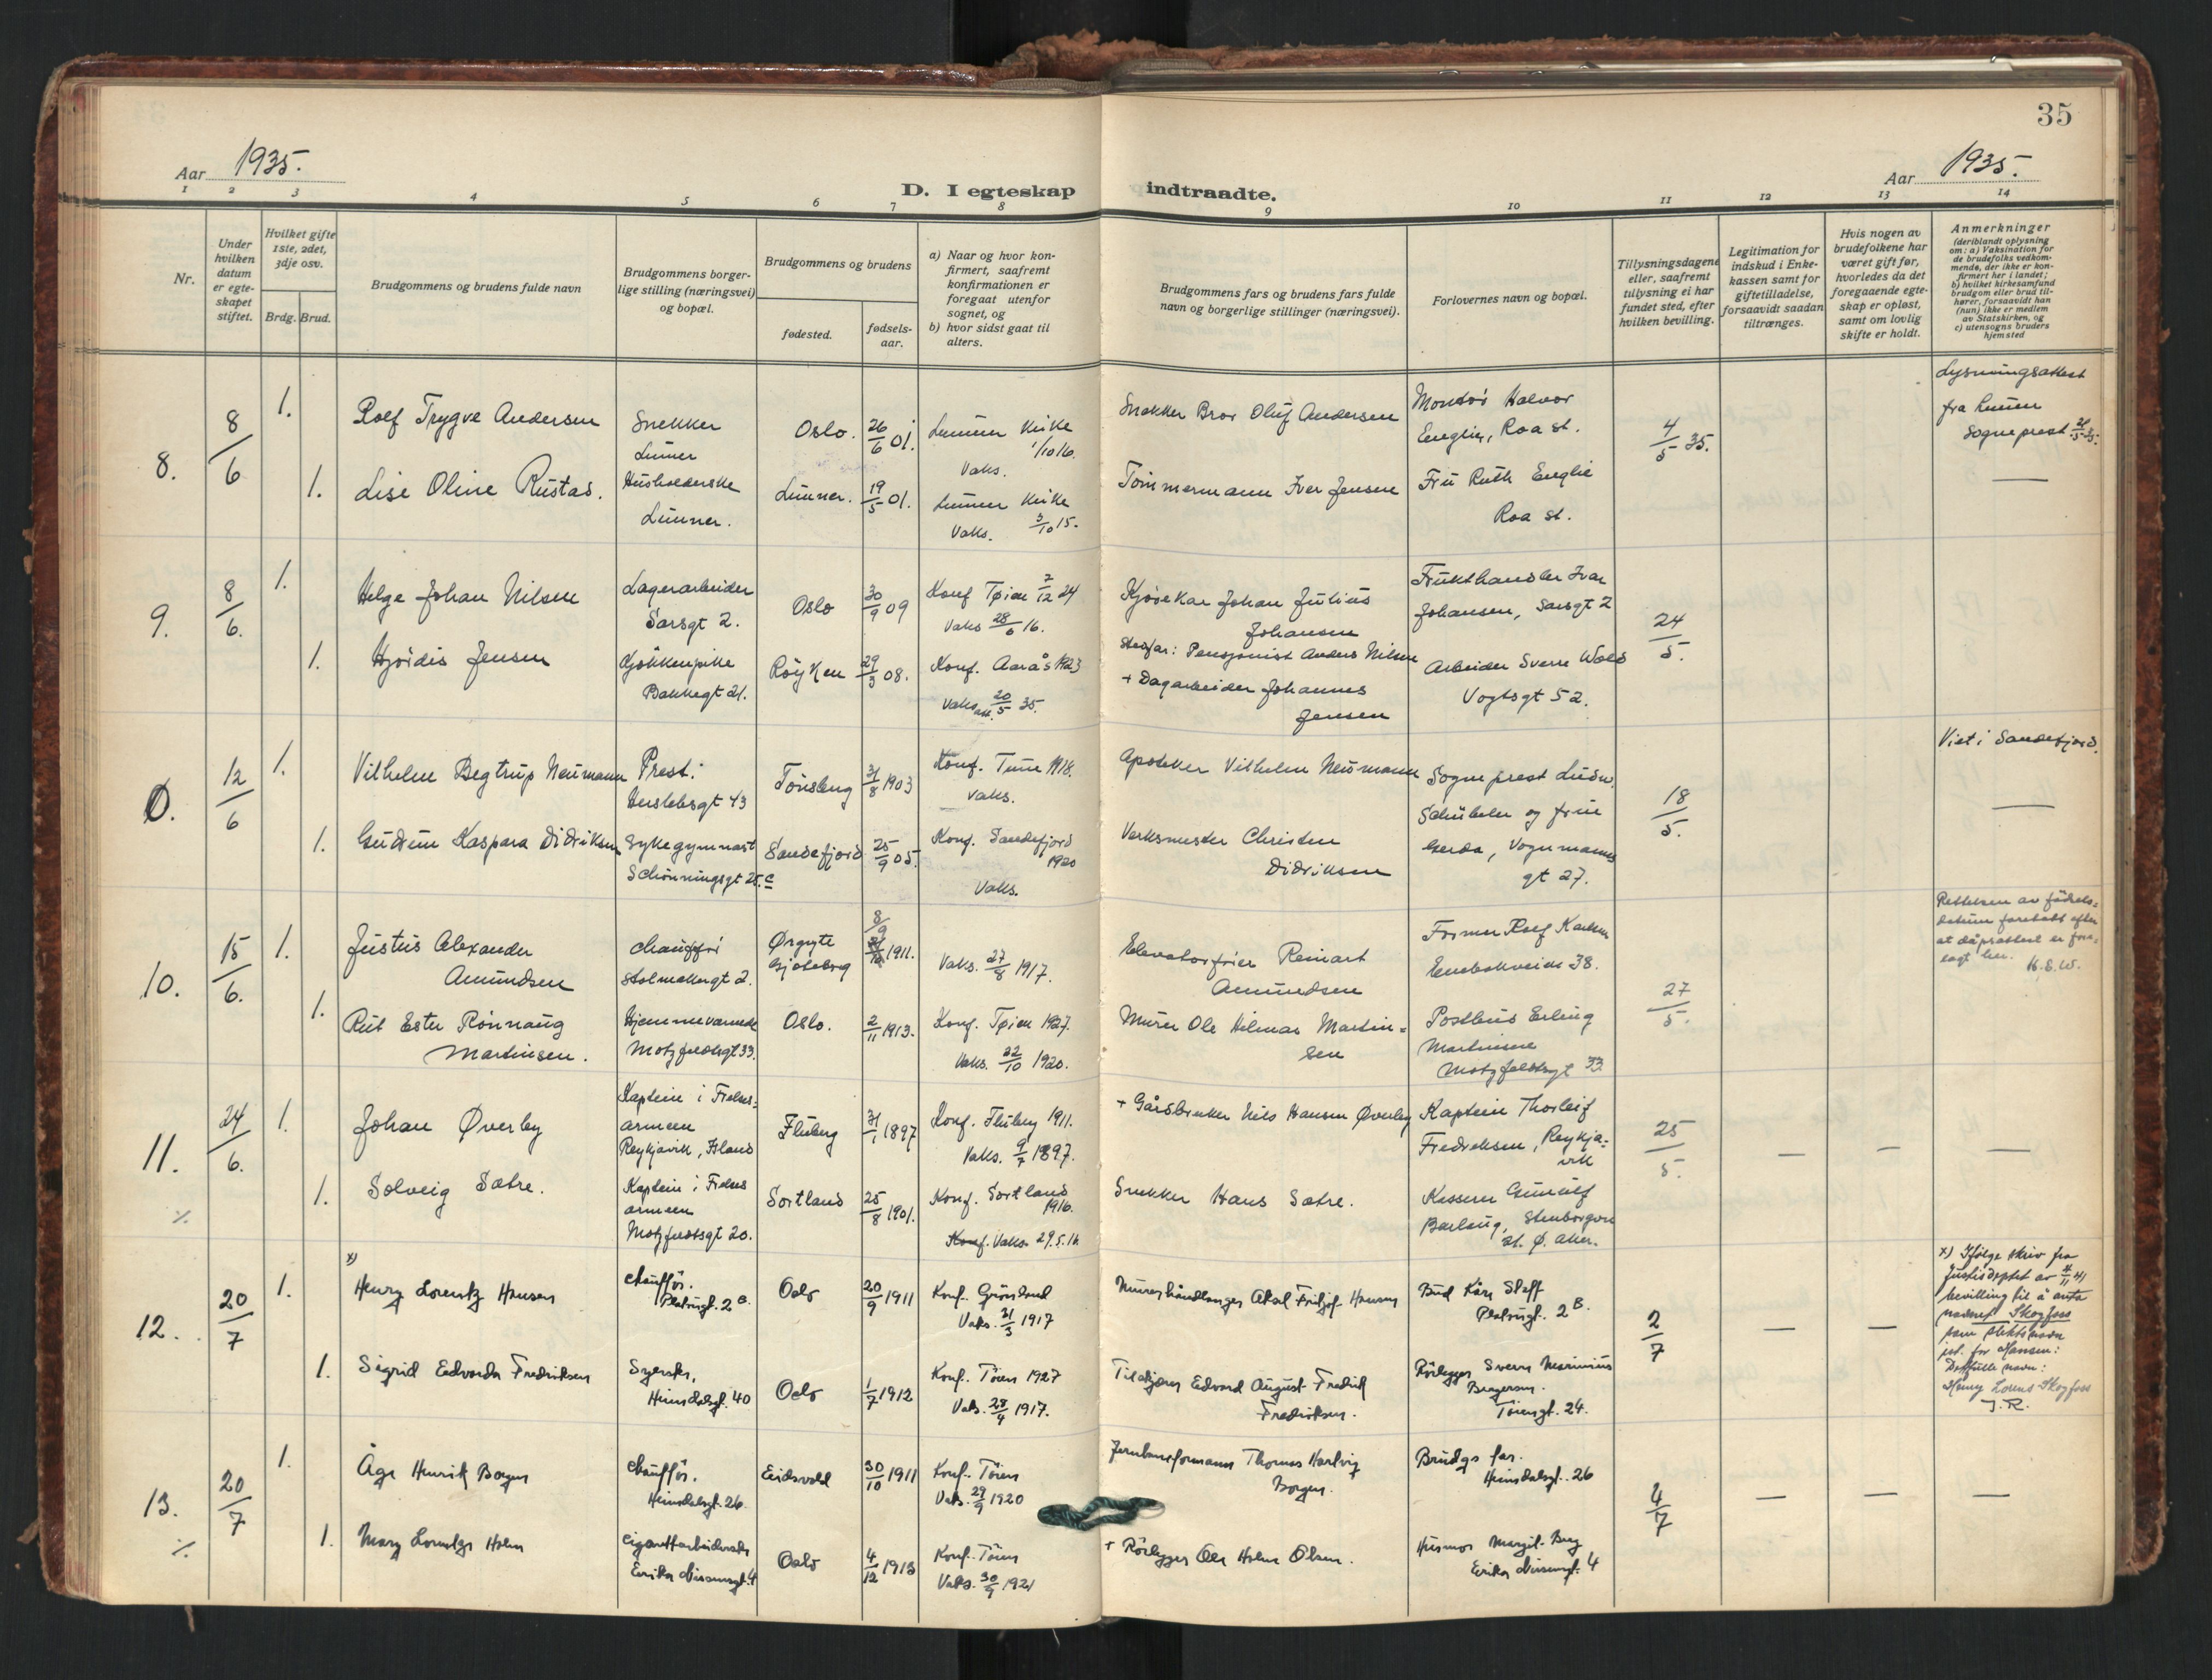 35
Aar 1935.
Aar 1935.
D. I egteskap indtraadte.
1 2 3 4 5 6 7 8 9 10 11 12 13 14
Nr.
Under hvilken datum er egte-skapet stiftet.
Hvilket gifte 1ste, 2det, 3dje osv.
Brdg. Brud.
Brudgommens og brudens fulde navn
Brudgommens borger-lige stilling (næringsvei) og bopæl.
Brudgommens og brudens
fødested.
fødsels-aar.
a) Naar og hvor kon-firmert, saafremt konfirmationen er foregaat utenfor sognet, og
b) hvor sidst gaat til alters.
Brudgommens fars og brudens fars fulde navn og borgerlige stillinger (næringsvei).
Forlovernes navn og bopæl.
Tillysningsdagene eller, saafremt tillysning ei har fundet sted, efter hvilken bevilling.
Legitimation for indskud i Enke-kassen samt for giftetilladelse, forsaavidt saadan tiltrænges.
Hvis nogen av brudefolkene har været gift før, hvorledes da det foregaaende egte-skap er opløst, samt om lovlig skifte er holdt.
Anmerkninger
(deriblandt oplysning om: a) Vaksination for de brudefolks vedkom-mende, der ikke er kon-firmert her i landet; b) hvilket kirkesamfund brudgom eller brud til-hører, forsaavidt han (hun) ikke er medlem av Statskirken, og c) utensogns bruders hjemsted
8. 8/6 1. Rolf Trygve Andersen
Snekker Lunner
Oslo. 26/6 01.
Lunner kirke 1/10 16. Vaks.
Snekker Bror Oluf Andersen
Montør Halvor Englie, Roa st.
4/5 35.
Lysningsattest fra Lunner Sogneprest 21/5 35.
1. Lise Oline Rustad.
Husholderske Lunner.
Lunner. 19/5 01.
Lunner kirke 3/10 15. Vaks.
Tømmermann Iver Jensen
Fru Ruth Englie Roa st.
9. 8/6. 1. Helge Johan Nilsen
Lagerarbeider Sarsgt 2.
Oslo 30/9 09
Konf Tøien 7/12 24 Vaks 28/6 16.
Kjørekar Johan Julius Johansen
Stedfar: Pensjonist Anders Nilsen
Frukthandler Ivar Johansen, Sarsgt 2
24/5.
1. Hjördis Jensen
Kjøkkenpike Bakkegt 21.
Røyken 29/3 08.
Konf. Aarås 1923 Vaks. att. 20/5 35.
+ Dagarbeider Johannes Jensen
Arbeider Sverre Wold Vogtsgt 52.
0. 12/6 1. Vilhelm Begtrup Neumann
Prest. Herslebsgt 43
Tønsberg 31/8 1903
Konf. Tune 1918. Vaks.
Apoteker Vilhelm Neumann
Sogneprest Ludw. Schübeler og frue Gerda, Vognmanns gt 27.
18/5.
Viet i Sandefjord.
1. Gudrun Kaspara Didriksen
Sykegymnast Schønningsgt 25.c
Sandefjord 25/9 05.
Konf. Sandefjord 1920 Vaks.
Verksmester Christen Didriksen
10. 15/6. 1. Justus Alexander Amundsen
Chauffør Stolmakergt 2.
Ørgryte Gjøteborg 8/9 1911.
Vaks. 27/8 1917.
Elevatorfører Reinart Amundsen
Former Rolf Karlsen Enebakveien 38.
27/5.
Rettelsen av fødsels-datum foretatt efter at dåpsattest er fore-lagt her. K.S.W.
1. Rut Ester Rønnaug Martinsen.
Hjemmeværende Motzfeldtsgt 33.
Oslo. 2/11 1913.
Konf. Tøien 1927. Vaks. 22/10 1920.
Murer Ole Hilmar Martin-sen
Postbud Erling Martinsen Motzfeldtsgt 33.
11. 24/6. 1. Johan Øverby
Kaptein i Frelses-armeen Reykjavik, Island
Fluberg 31/1 1897
Konf. Fluberg 1911. Vaks. 9/7 1897.
+ Gårdbruker Nils Hansen Øverby
Kaptein Thorleif Fredriksen, Reykja-vik
25/5.
1. Solveig Sætre.
Kaptein i Frelses armeen Motzfeldtsgt 20.
Sortland 25/8 1901.
Konf. Sortland 1916. Konf. Vaks. 29.5.16
Snekker Hans Sætre.
Kasserer Gunulf Barlaug, st. Ø. Aker.
12. 20/7 1. x) Henry Lorentz Hansen
Chauffør. Platougt. 2 B.
Oslo 20/9 1911
Konf. Grønland Vaks. 31/3 1917
Murerhåndlanger Aksel Fritjof Hansen
Bud Kåre Steff Platougt. 2 B.
2/7
x) Ifølge skriv fra Justisdeptet av 4/11 41 bevilling til å anta navnet Skogfoss som slektsnavn ist. for Hansen: Det fulle navn: Henry Lorens Skogfoss J.R.
1. Sigrid Edvarda Fredriksen
Syerske, Heimdalsgt. 40
Oslo 1/7 1912
Konf. Tøien 1927 Vaks. 28/4 1917.
Tilskjærer Edvard August Fredrik Fredriksen.
Rørlegger Sverre Marinius Bergersen. Tøiengt. 24.
13. 20/7 1. Åge Henrik Borgen
Chauffør. Heimdalsgt. 26
Eidsvold 30/10 1911
Konf. Tøien Vaks. 29/9 1920
Jernbaneformann Thomas Hartvig Borgen.
Brudgs far. Heimdalsgt. 26
4/7
1. Mary Lorentze Holm
Cigarettarbeiderske Eirika Nissensgt. 4
Oslo 4/12 1913
Konf. Tøien Vaks. 30/9 1921
+ Rørlegger Ole Holm Olsen.
Husmor Margit Berg Eirika Nissensgt. 4